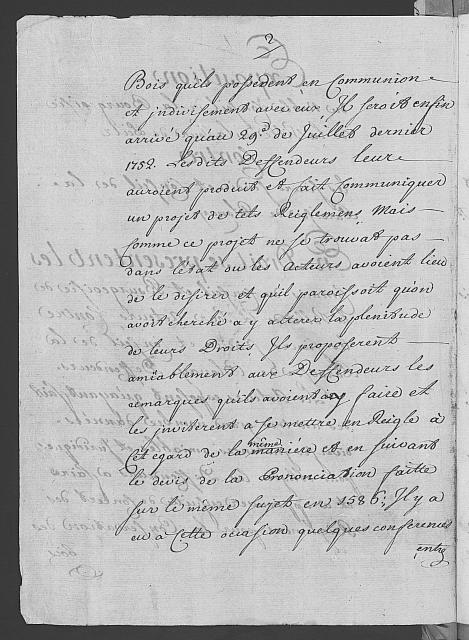 2
Bois quels possedent en Communion
et indivisement avec eux, Il seroit enfin
arrivé quau 29.d de Juillet dernier
1752. Lesdits Deffendeurs leur
auroient produit et fait Communiquer
un projet de tels Reiglemens, Mais
comme ce projet ne se trouvat pas
dans l'état ou les Acteurs avoient lieu
de le desirer et quil paroissoit quon
avoit cherché a y alterer la plenitude
de leurs Droits, Ils proposerent
amiablement aux Deffendeurs les
remarques quils avoient a y faire et
les inviterent a se mettre en Reigle à
cet egard de la même maniére et en suivant
le devis de la Prononciation faitte
sur le même sujet en 1586; Il y a
eu à Cette occasion quelques conferences
entre